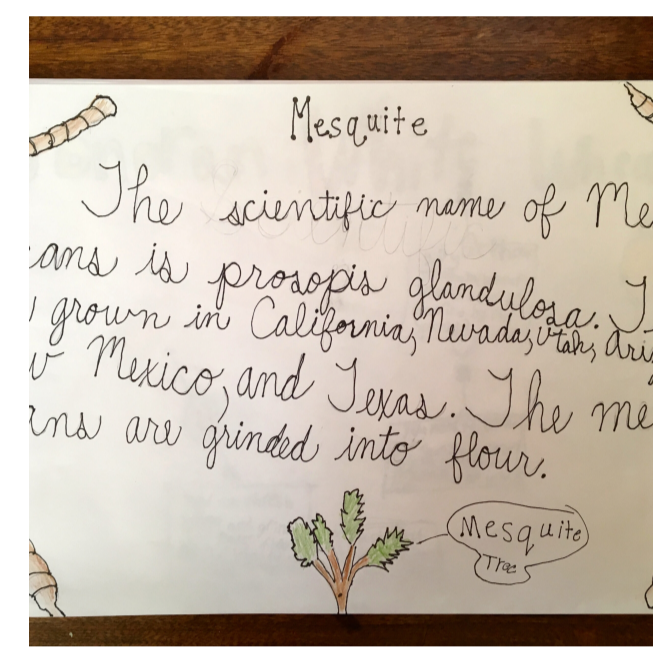 Mesquite
The scientific name of Me
ans is prosopis glandulosa. T
grown in California, Nevada, Utah, Ari
w Mexico, and Texas. The me
ans are grinded into flour.
Mesquite
Tree